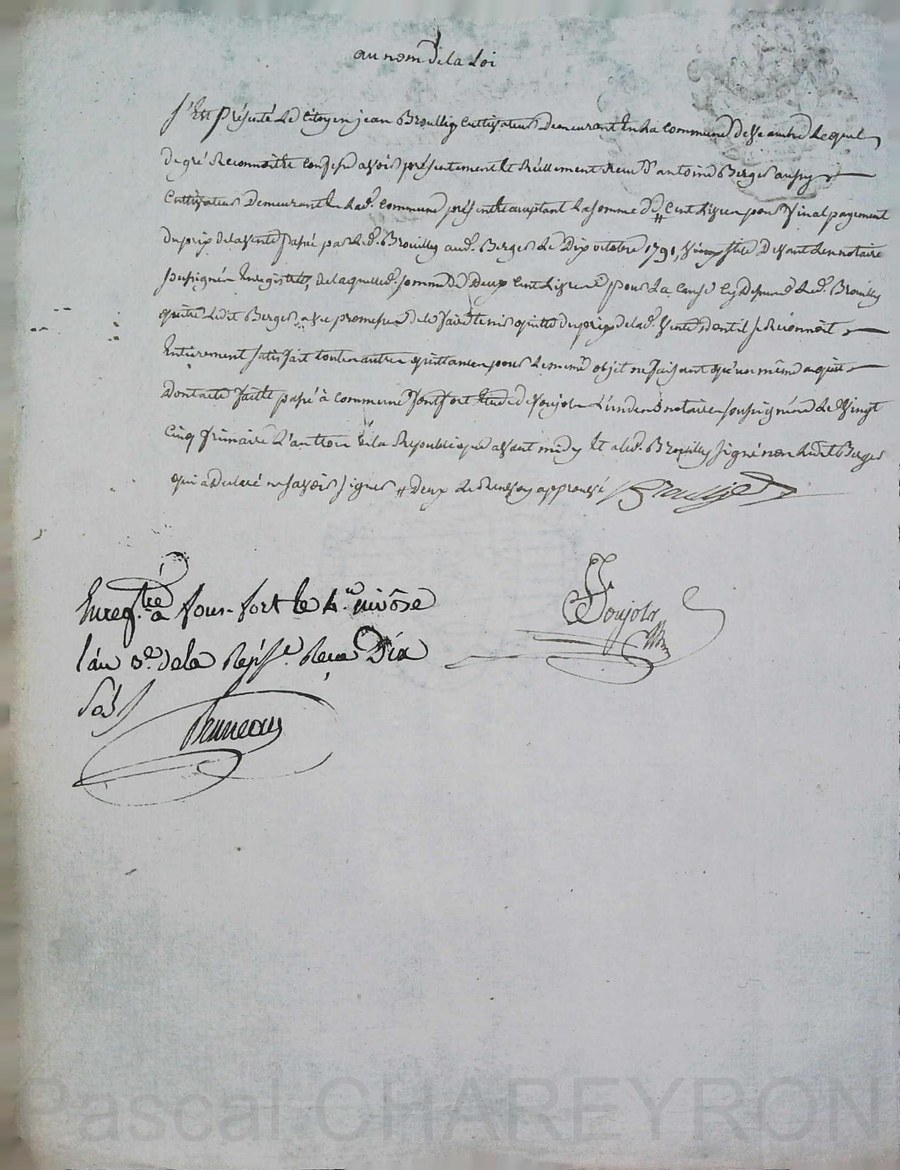 au nom de la Loi
S'est présenté Le Citoyen jean Brouilly Cultivateur Demeurant En La Commune de Lequel
de gré Reconnoitre confesse avoir présentement Et Réellement Receu D'antoine Berger aussy
Cultivateur Demeurant En lad. Commune présent acceptant La somme de # Cent Livres pour final payement
du prix dela vente passé par Led. Brouilly aud. Berger Le Dix octobre 1791, Devant Le notaire
soussigné Enregistré, de laquelle d. somme De Deux Cent Livres pour La Cause Cy Dessus Led. Brouilly
quitte Ledit Berger avec promesse De le faire tenir quitte du prix de lad. Vente, dont il se Reconnoit
Entierement satisfait toute autre quittance pour Le meme objet ne faisant qu'une même aquit
Dont acte fait Et passé à Commune fontfort Etude de Soujols L'un des notaires soussigné Le Vingt
Cinq frimaire L'an trois De la Republique avant midy Et a led. Brouilly signé non Ledit Berger
qui a Declaré ne savoir signer # Deux Le Renvoy approuvé Brouilly
Enregtré à fons-fort le 4.e nivôse
l'an 3.e de la Rép.e Reçu Dix
Sols
Bruneau
Soujols
Pascal CHAREYRON